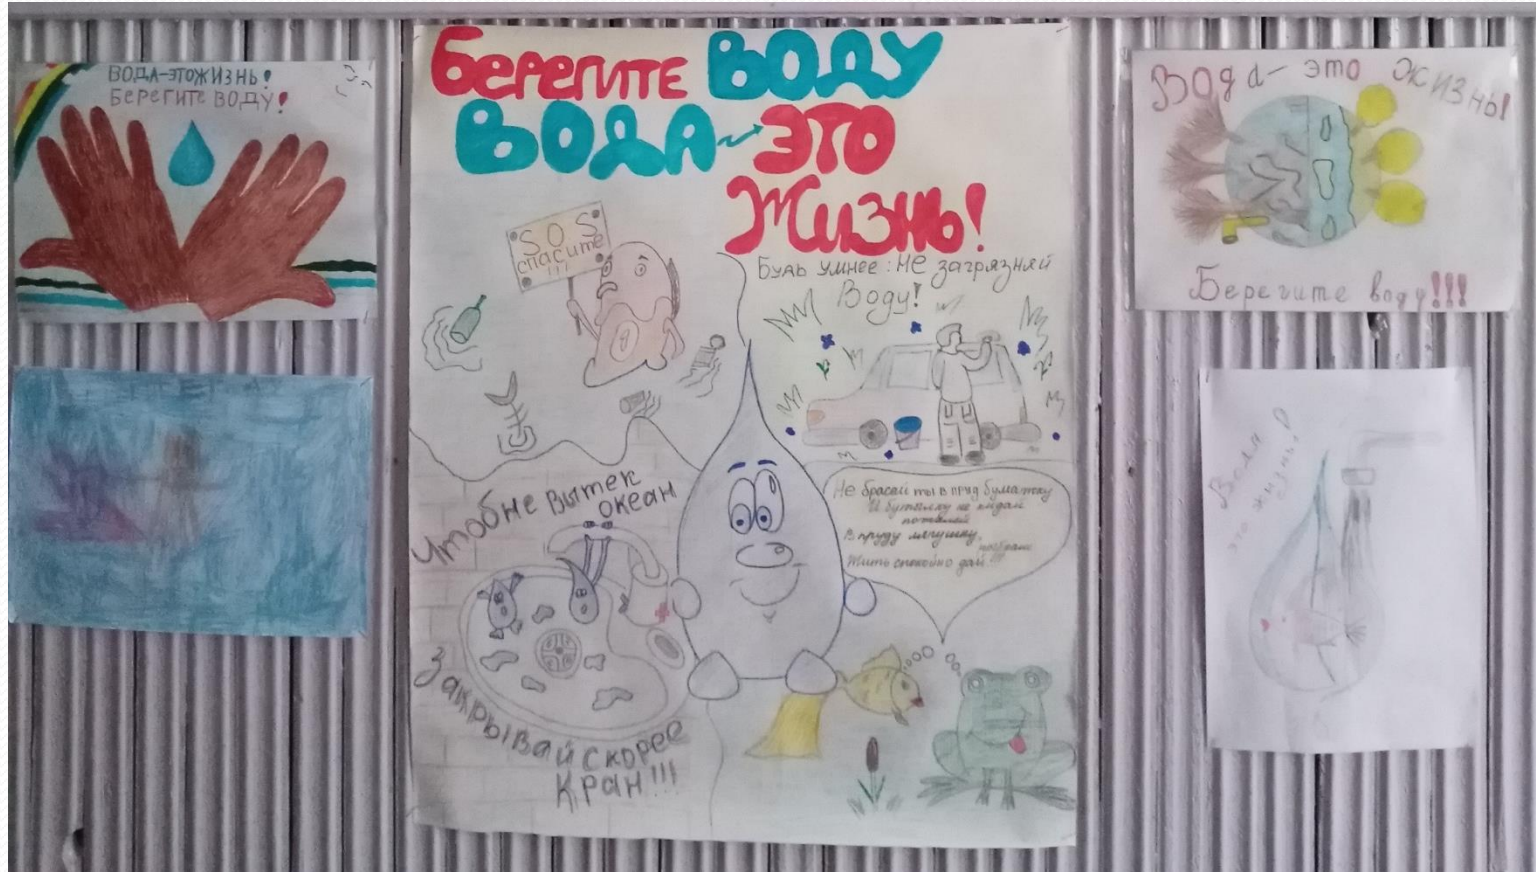 ВОДА-ЭТОЖИЗНЬ!
БЕРЕГИТЕ ВОДУ!
БЕРЕГИТЕ ВОДУ
ВОДА ЭТО
Жизнь!
SOS
спасите
!!!
Будь умнее: не загрязняй
Воду!
Чтоб не вытек
океан
Закрывай скорее
Кран!!!
Не брасай ты в пруд бумажку
И бутылку не кидай
В пруду лягушку,
Жить спокойно дай!!!
Вода- это жизнь!
Берегите воду!!!
Вода
это жизнь!